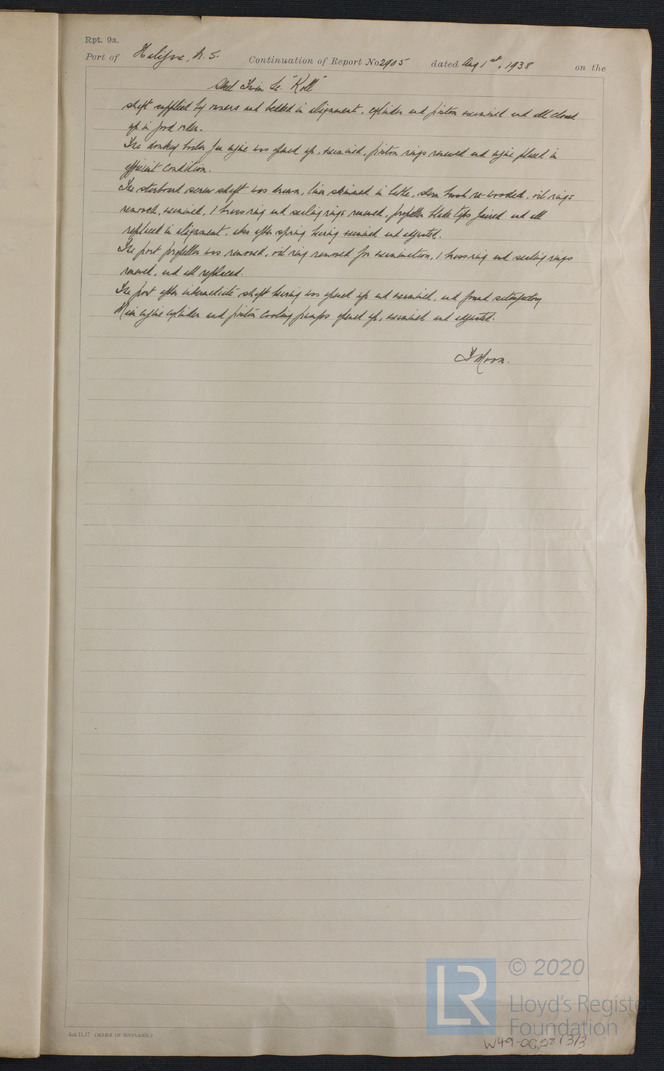 Rpt. 9a.
Port of Halifax, N. S. Continuation of Report No 2905 dated Aug 1st, 1938 on the
Steel Twin Sc "Kott"
shaft supplied by owners and bedded in alignment, cylinder and piston examined and all closed
up in good order.
The donkey boiler fan engine was opened up, examined, piston rings renewed and engine placed in
efficient condition.
The starboard screw shaft was drawn, liner skimmed in lathe, stern bush re-wooded, oil rings
removed, examined, 1 brass ring and sealing rings renewed, propeller blade tips faired and all
replaced in alignment, also after spring bearing examined and adjusted.
The port propeller was removed, oil ring removed for examination, 1 brass ring and sealing rings
renewed, and all replaced.
The port after intermediate shaft bearing was opened up and examined, and found satisfactory
Main engine cylinder and piston cooling pumps opened up, examined and adjusted.
J Moon.
(MADE IN ENGLAND.)
© 2020
LR
Lloyd's Register
Foundation
W49-0028 (3/3